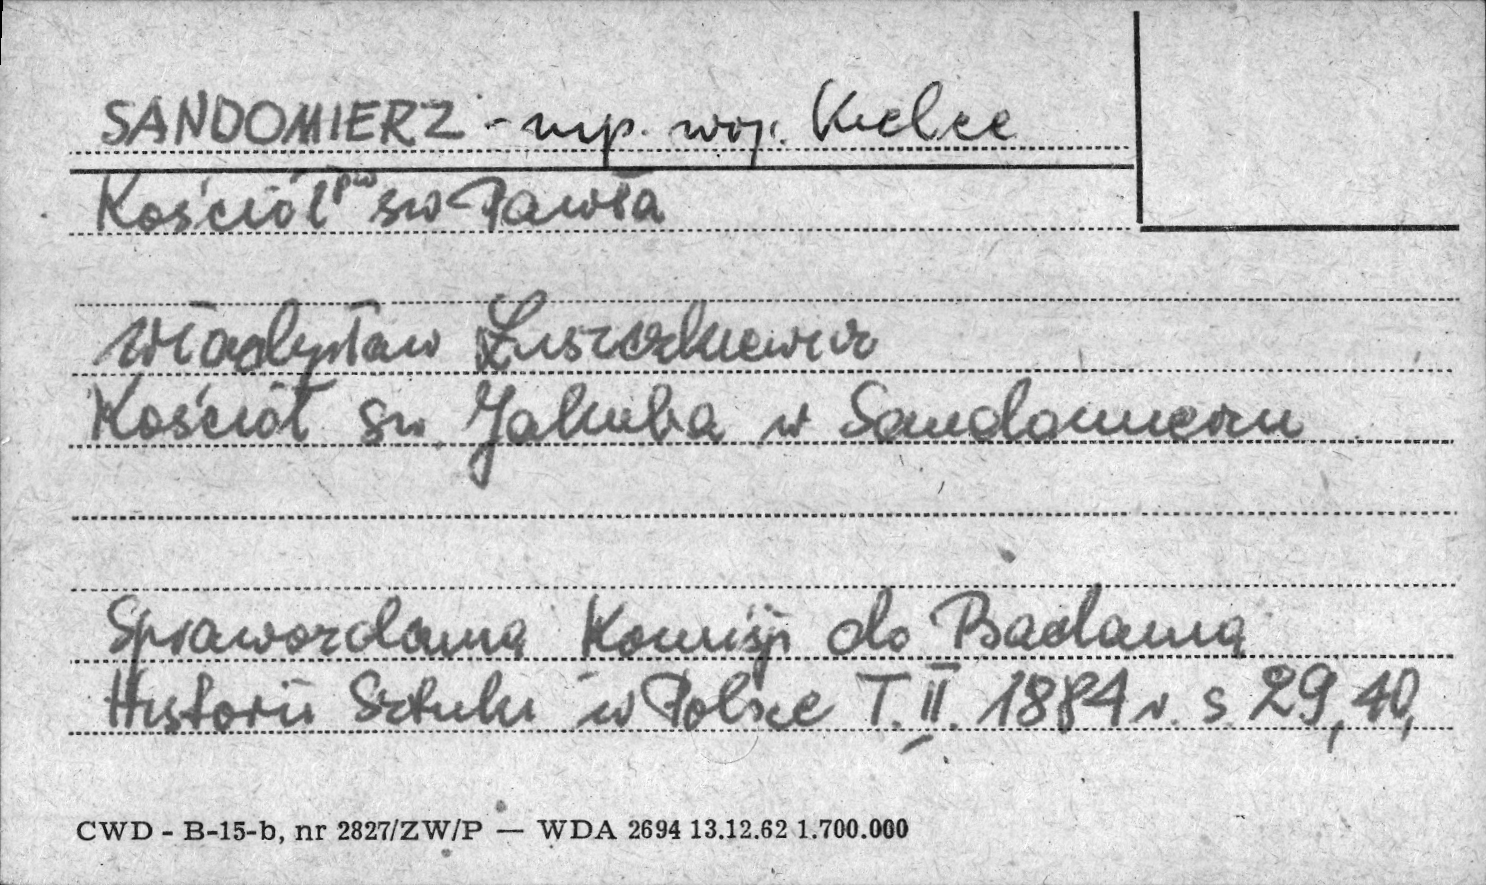 SANDOMIERZ - mp. woj. Kielce
Kościół pw św Pawła
Władysław Łuszczkiewicz
Kościół św. Jakuba w Sandomierzu
Sprawozdania Komisji do Badania
Historii Sztuki w Polsce T. II. 1884 r. s 29, 40,
CWD - B-15-b, nr 2827/ZW/P — WDA 2694 13.12.62 1.700.000